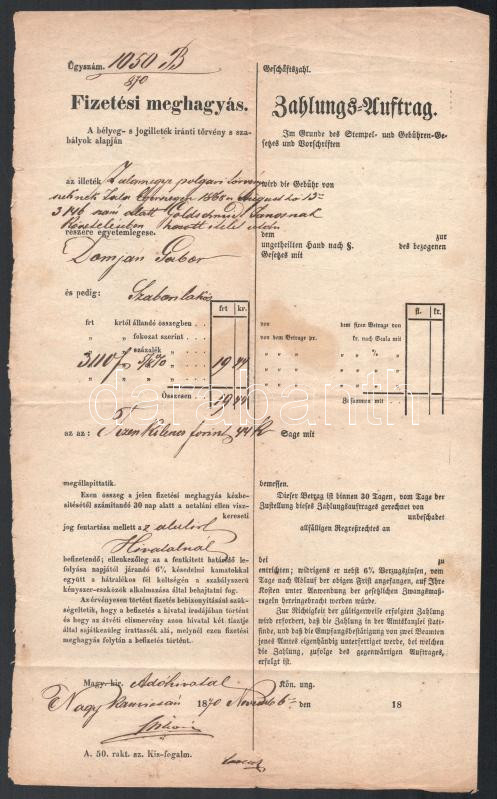 Ügyszám. 1050 B
870
Fizetési meghagyás.
A bélyeg- s jogilleték iránti törvény s sza-
bályok alapján
az illeték Zalamegye polgári törvény
1868
3
részére egyetemlegese.
Domján Gábor
és pedig:
frt kr.
frt krtól állandó összegben . .
„ „ fokozat szerint . .
„ „ százalék „ . .
3110 f 19 44
Összesen . . 19 44
az az: Tizenkilencz forint 44 k
megállapittatik.
Ezen összeg a jelen fizetési meghagyás kézbe-
sitésétől számitandó 30 nap alatt a netaláni ellen visz-
kereseti
jog fentartása mellett az alulirt
Hivatalnál
befizetendő; ellenkezőleg az a fentkitett határidő le-
folyása napjától járandó 6% késedelmi kamatokkal
együtt a hátralékos fél költségén a szabályszerű
kényszer-eszközök alkalmazása által behajtatni fog.
Az érvényesen történt fizetés bebizonyitásául szük-
ségeltetik, hogy a befizetés a hivatal irodájában történt
és hogy az átvéti elismervény azon hivatal két tisztje
által sajátkezüleg irattassék alá, melynél ezen fizetési
meghagyás folytán a befizetés történt.
Magy. kir. Adóhivatal
Nagy Kanizsán 1870 6
A. 50. rakt. sz. Kis-fogalm.
Geschäftszahl.
Zahlungs-Auftrag.
Im Grunde des Stempel- und Gebühren-Ge-
setzes und Vorschriften
wird die Gebühr von
dem zur
ungetheilten Hand nach §. des bezogenen
Gesetzes mit
fl. kr.
von dem fixen Betrage von
von dem Betrage pr. kr. nach Scala mit
„ „ „ „ % „
„ „ „ „ „ „
Zusammen mit . .
Sage mit
bemessen.
Dieser Betrag ist binnen 30 Tagen, vom Tage der
Zustellung dieses Zahlungsauftrages gerechnet von
unbeschadet
allfälligen Regreßrechtes an
bei zu
entrichten; widrigens er nebst 6% Verzugszinsen, vom
Tage nach Ablauf der obigen Frist angefangen, auf Ihre
Kosten unter Anwendung der gesetzlichen Zwangsmaß-
regeln hereingebracht werden würde.
Zur Richtigkeit der gültigerweise erfolgten Zahlung
wird erfordert, daß die Zahlung in der Amtskanzlei statt-
finde, und daß die Empfangsbestätigung von zwei Beamten
jenes Amtes eigenhändig unterfertiget werde, bei welchem
die Zahlung, zufolge des gegenwärtigen Auftrages,
erfolgt ist.
Kön. ung.
den 18
darabanth